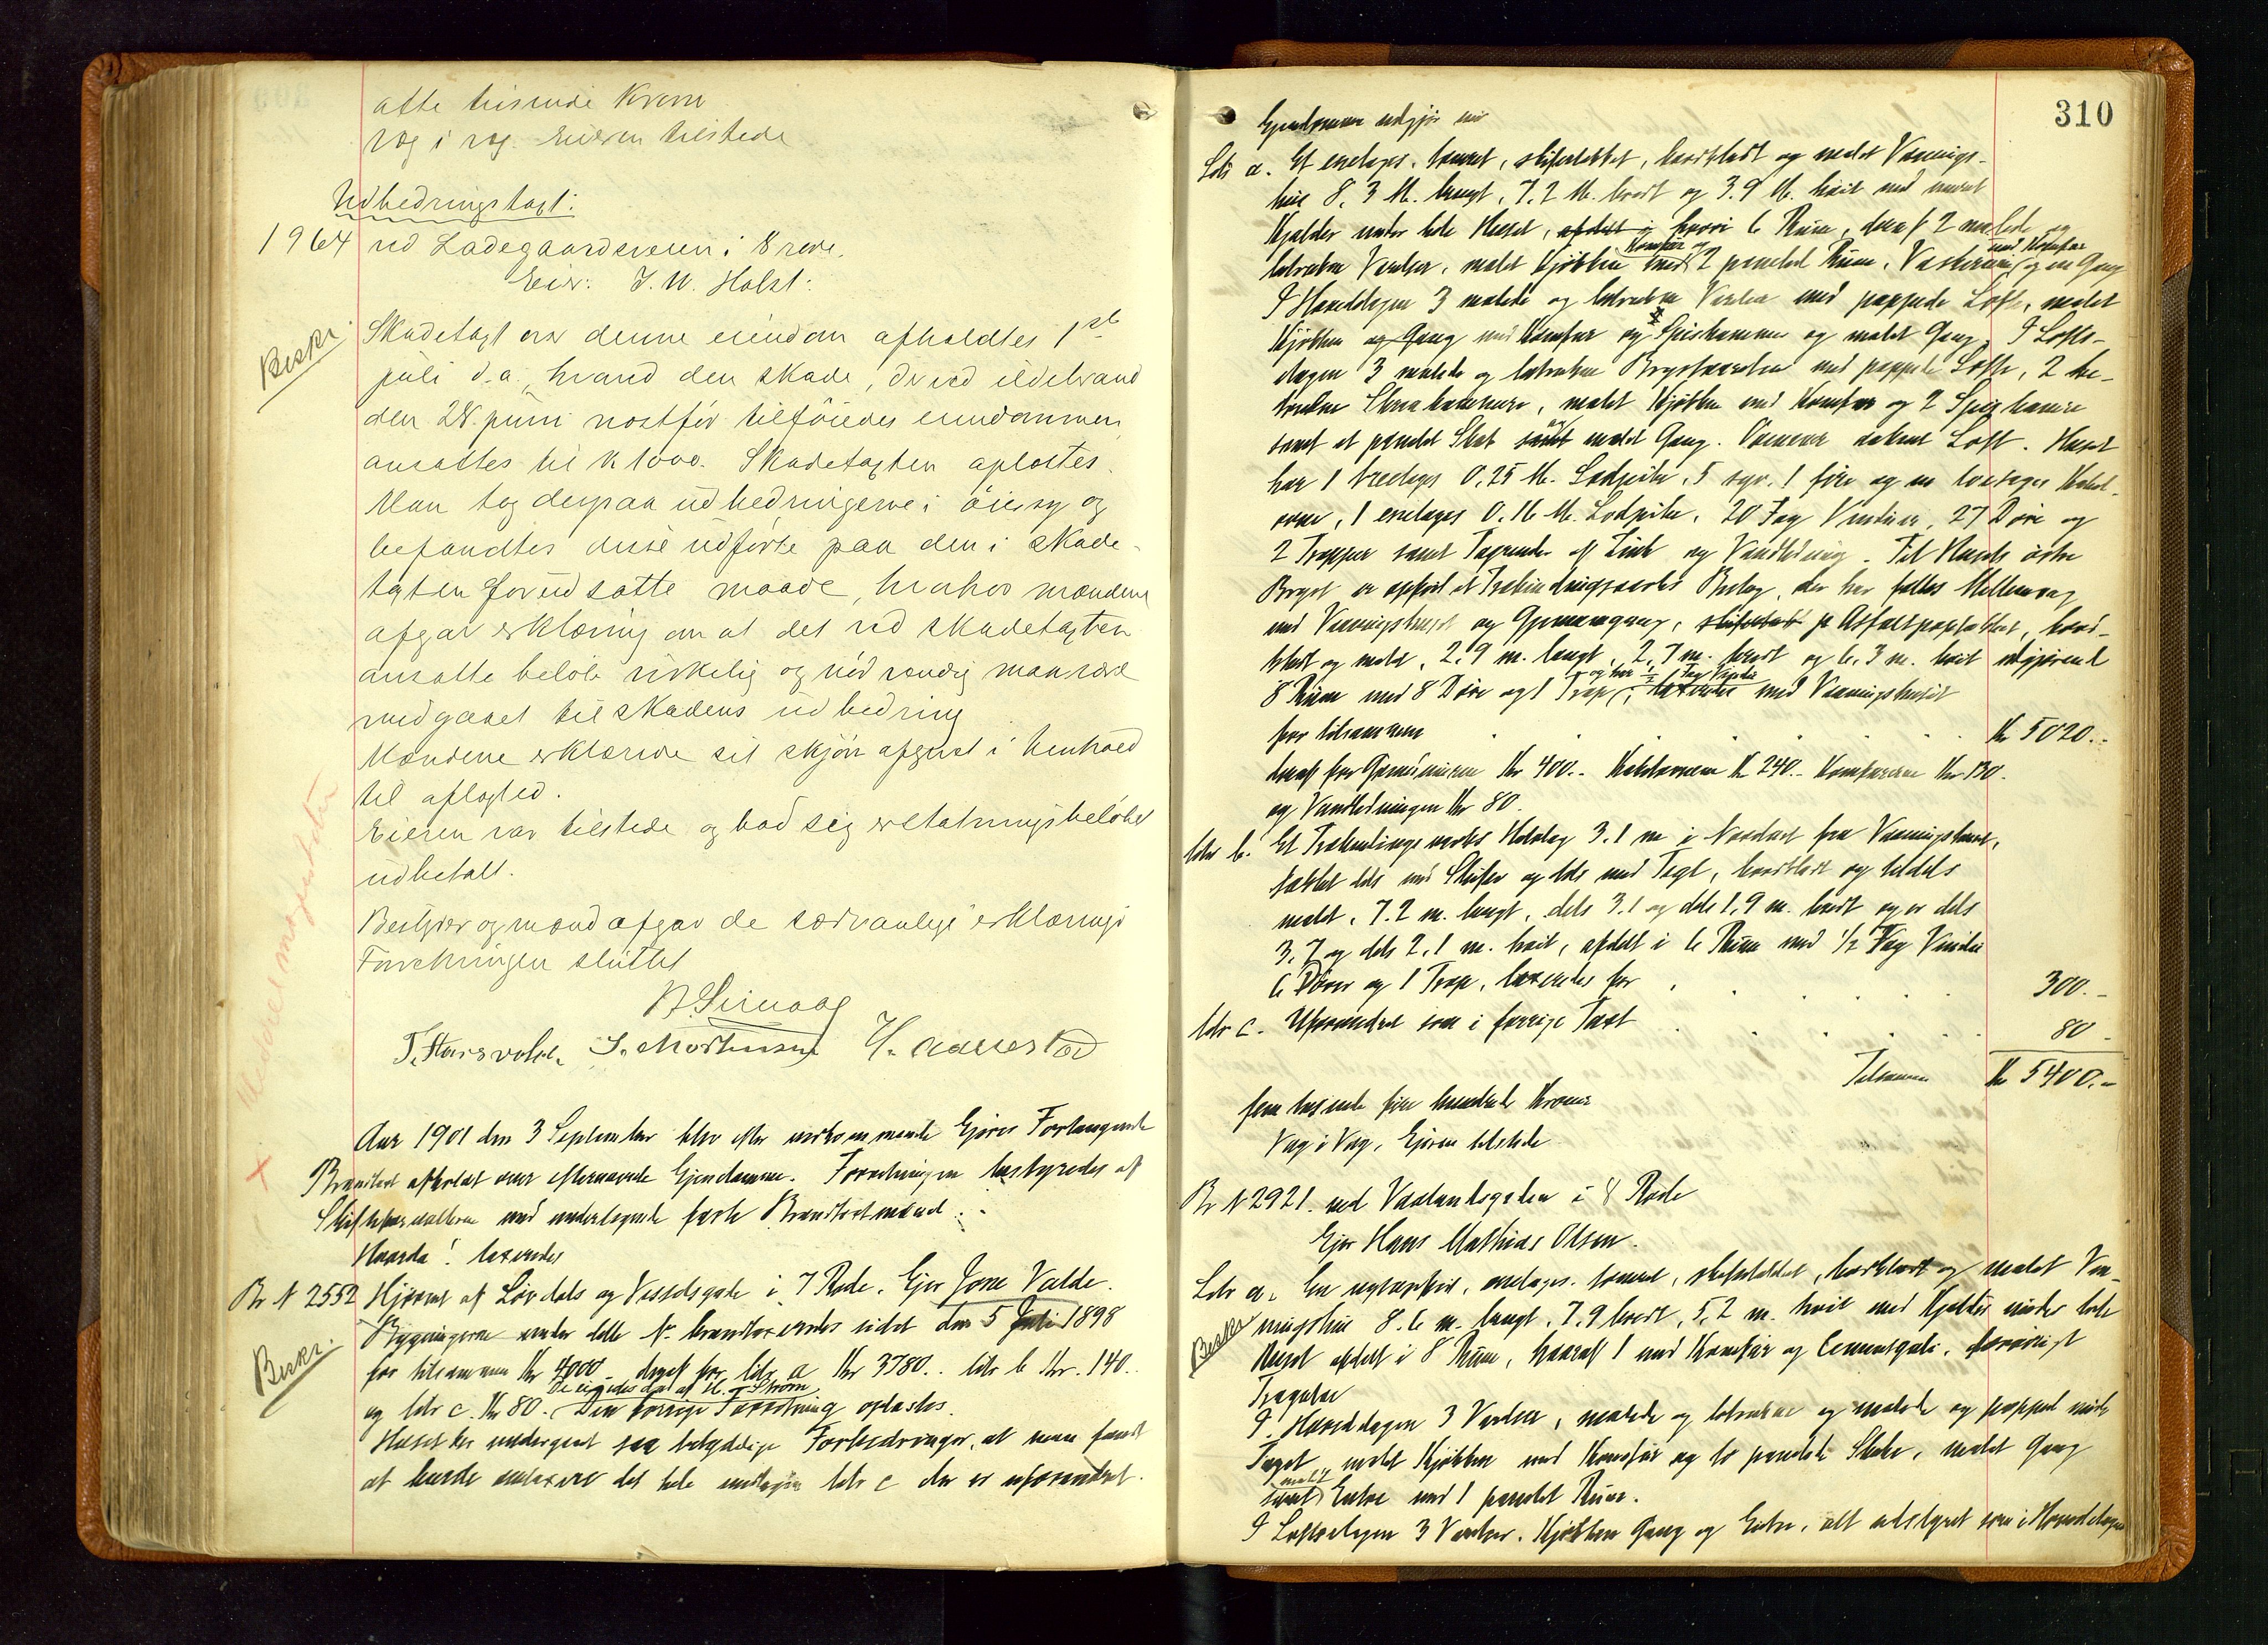 otte tusinde Kroner
væg i væg. Eieren tilstede
Udbedringstaxt:
1964 ved Ladegaardsveien i 8 rode.
Eier: J. W. Holst:
Beskr.
Skadetaxt over denne eiendom afholdtes 1st
juli d.a., hvorved den skade, der ved ildebrand
den 28. juni nostfør tilføiedes eiendommen,
ansattes til K 1000. Skadetaxten oplæstes.
Man tog derpaa udbedringerne i øiesyn og
befandtes disse udførte paa den i skade-
taxten forudsatte maade, hvorhos mændene
afgav erklæring om at det ved skadetaxten
ansatte beløb virkelig og nødvendig maa være
medgaaet til skadens udbedring
Mændene erklærede sit skjøn afgivet i henhold
til aflagt ed.
Eieren var tilstede og bad sig erstatningsbeløbet
udbetalt.
Bestyrer og mænd afgav de sædvanlige erklæringer
Forretningen sluttet
T. Stangvold. S. Mortensen
Aar 1901 den 3 September blev efter vedkommende Ejeres Forlangende
Brandtaxt afholdt over efternævnte Ejendomme. Forretningen bestyredes af
Skifteforvalteren med undertegnede faste Brandtaxtmænd.
Hvorda! taxeredes
Br N 2552 Hjørnet af Løvdals og Vesselsgade i 7 Rode. Ejer Jone Valde.
Beskr.
Bygningerne under dette Nr brandtaxeredes sidst den 5 Juli 1898
for tilsammen Kr 4000 deraf for litr. a Kr 3780.. litr b Kr. 140.
og litr c. Kr 80. Den forrige Forretning oplæstes.
Huset har undergaaet saa betydelige Forbedringer, at man fandt
at burde omtaxere det hele undtagen litr c der er uforandret.
310
Ejendommen udgjør nu
Litr a. Et enetages tømret, skifertækket, bordklædt og malet Vaanings-
hus 8,3 M. langt, 7.2 M. bredt og 3.9 M. høit med muret
Kjælder under hele Huset, afdelt i hvori 6 Rum, deraf 2 malede og
betrukne Værelser, malet Kjøkken med Komfur og 2 panelede Rum, Vaskerum med Komfur og en Gang
I Hovedetagen 3 malede og betrukne Værelser med pappede Lofte, malet
Kjøkken og Gang med Komfur og Spiskammer og malet Gang. I Lofts-
etagen 3 malede og betrukne Brystværelser med pappede Lofte, 2 be-
trukne Skraakammere, malet Kjøkken med Komfur og 2 Spiskamre
samt et panelet Skab samt malet Gang. Ovenover aabent Loft. Huset
har 1 treetages 0.25 M. Lodpibe, 5 syv, 1 fire og en toetages Kakel-
ovne, 1 enetages 0.16 M. Lodpibe, 20 Fag Vinduer, 27 Døre og
2 Trapper samt Tagrender af Zink og Vandledning. Til Husets østre
Bryst er opført et Træbindingsværks Bislag, der har fælles Mellemvæg
med Vaaningshuset og Gjennemgang, skifertækt pr Asfaltpaptækket, bord-
klædt og malet, 2.9 m. langt, 2,7 m. bredt og 6.3 m. høit udgjørende
8 Rum med 8 Døre og 1 Trap og har ½ Fag Vindue, taxeredes med Vaaningshuset
for tilsammen Kr 5020..
deraf for Grundmuren Kr 400.. Kakkelovnene Kr 240.. Komfurerne Kr 130.
og Vandledningen Kr 80.
litr b. Et Træbindingsværks Udslag 3.1 m i Nordost fra Vaaningshuset,
tækket dels med Skifer og dels med Tegl, bordklædt og tildels
malet, 7.2 m. langt, dels 3.1 og dels 1,9 m. bredt og er dels
3,7 og dels 2,1 m. høit, afdelt i 6 Rum med ½ Fag Vindue
6 Døre og 1 Trap, taxeredes for 300.-
litr c. Uforandret som i forrige Taxt 80.-
Tilsammen Kr 5400.-
fem tusinde fire hundrede Kroner
Væg i Væg, Ejeren tilstede
Br N 2921. ved Vaalandsgaden i 8 Rode
Ejer Hans Mathias Olsen.
Beskr.
Litr a. En nyopført, enetages tømret, skifertækket, bordklædt og malet Vaa-
ningshus 8.6 m. langt, 7,9 bredt, 5,2 m. høit med Kjælder under hele
Huset afdelt i 8 Rum, hvoraf 1 med Komfur og Cementgulv, forøvrigt
Trægulve
I Hovedetagen 3 Værelser, malede og betrukne og malede og pappet under
Taget, malet Kjøkken med Komfur og to panelede Skabe, malet Gang
samt malet Entre med 1 panelet Rum.
I Loftsetagen 3 Værelser, Kjøkken Gang og Entre, alt udstyret som i Hovedetagen